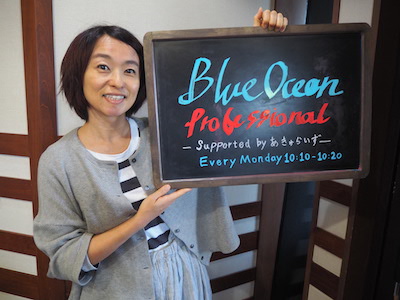 Blue Ocean
Professional
— Supported by あきゅらいず —
Every Monday 10:10-10:20